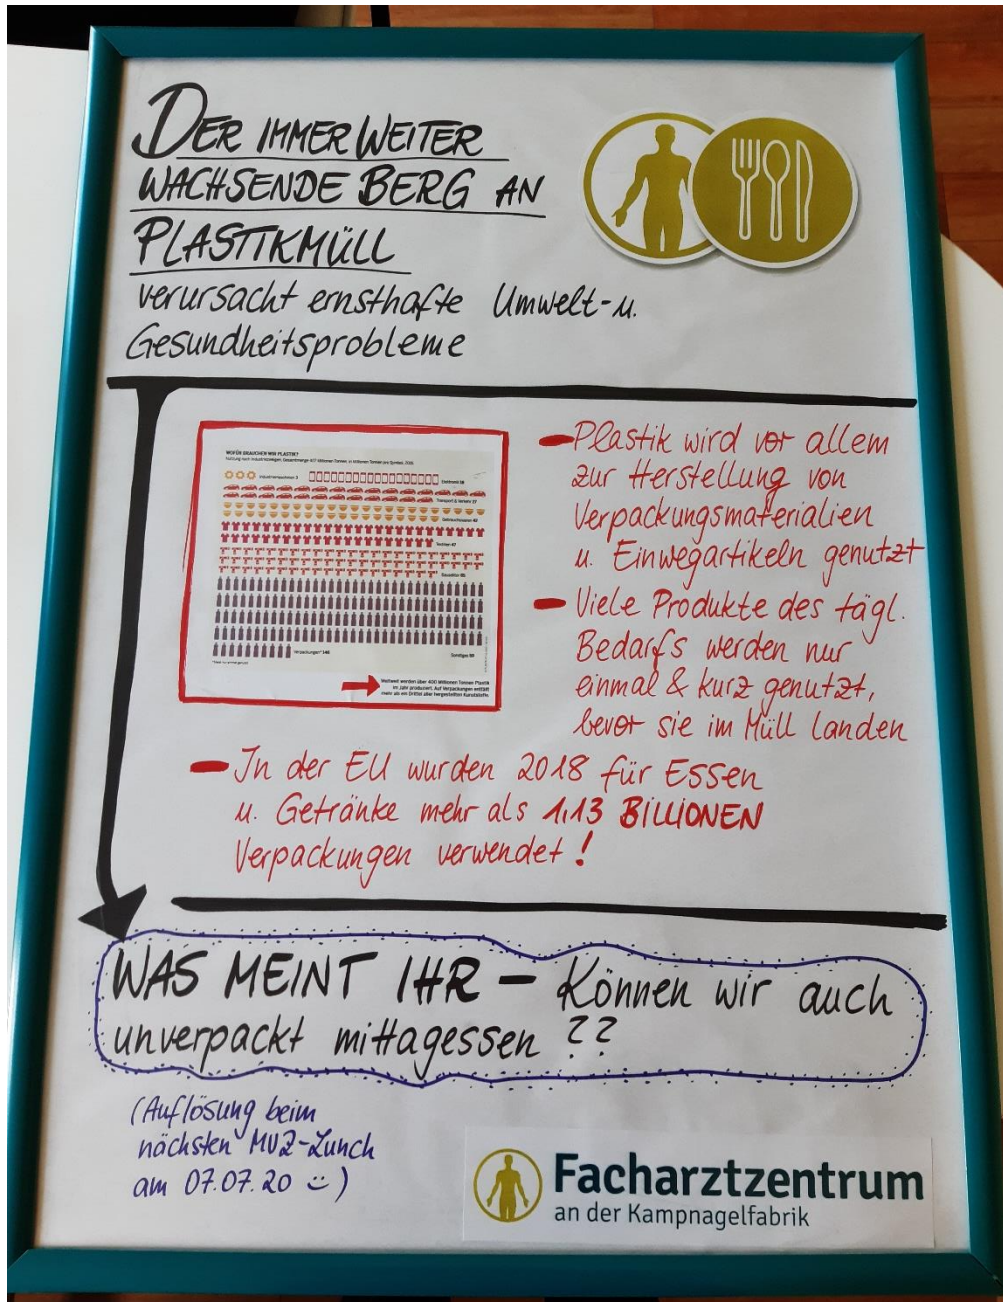 DER IMMER WEITER
WACHSENDE BERG AN
PLASTIKMÜLL
verursacht ernsthafte Umwelt- u.
Gesundheitsprobleme
WOFÜR BRAUCHEN WIR PLASTIK?
Elektronik 18
Transport & Verkehr 27
Textilien 47
Verpackungen* 146
Sonstiges 59
Weltweit werden über 400 Millionen Tonnen Plastik
im Jahr produziert. Auf Verpackungen entfällt
mehr als ein Drittel aller hergestellten Kunststoffe.
– Plastik wird vor allem
zur Herstellung von
Verpackungsmaterialien
u. Einwegartikeln genutzt
– Viele Produkte des tägl.
Bedarfs werden nur
einmal & kurz genutzt,
bevor sie im Müll landen
– In der EU wurden 2018 für Essen
u. Getränke mehr als 1,13 BILLIONEN
Verpackungen verwendet!
WAS MEINT IHR – Können wir auch
unverpackt mittagessen ??
(Auflösung beim
nächsten MVZ-Lunch
am 07.07.20 :-)
Facharztzentrum
an der Kampnagelfabrik